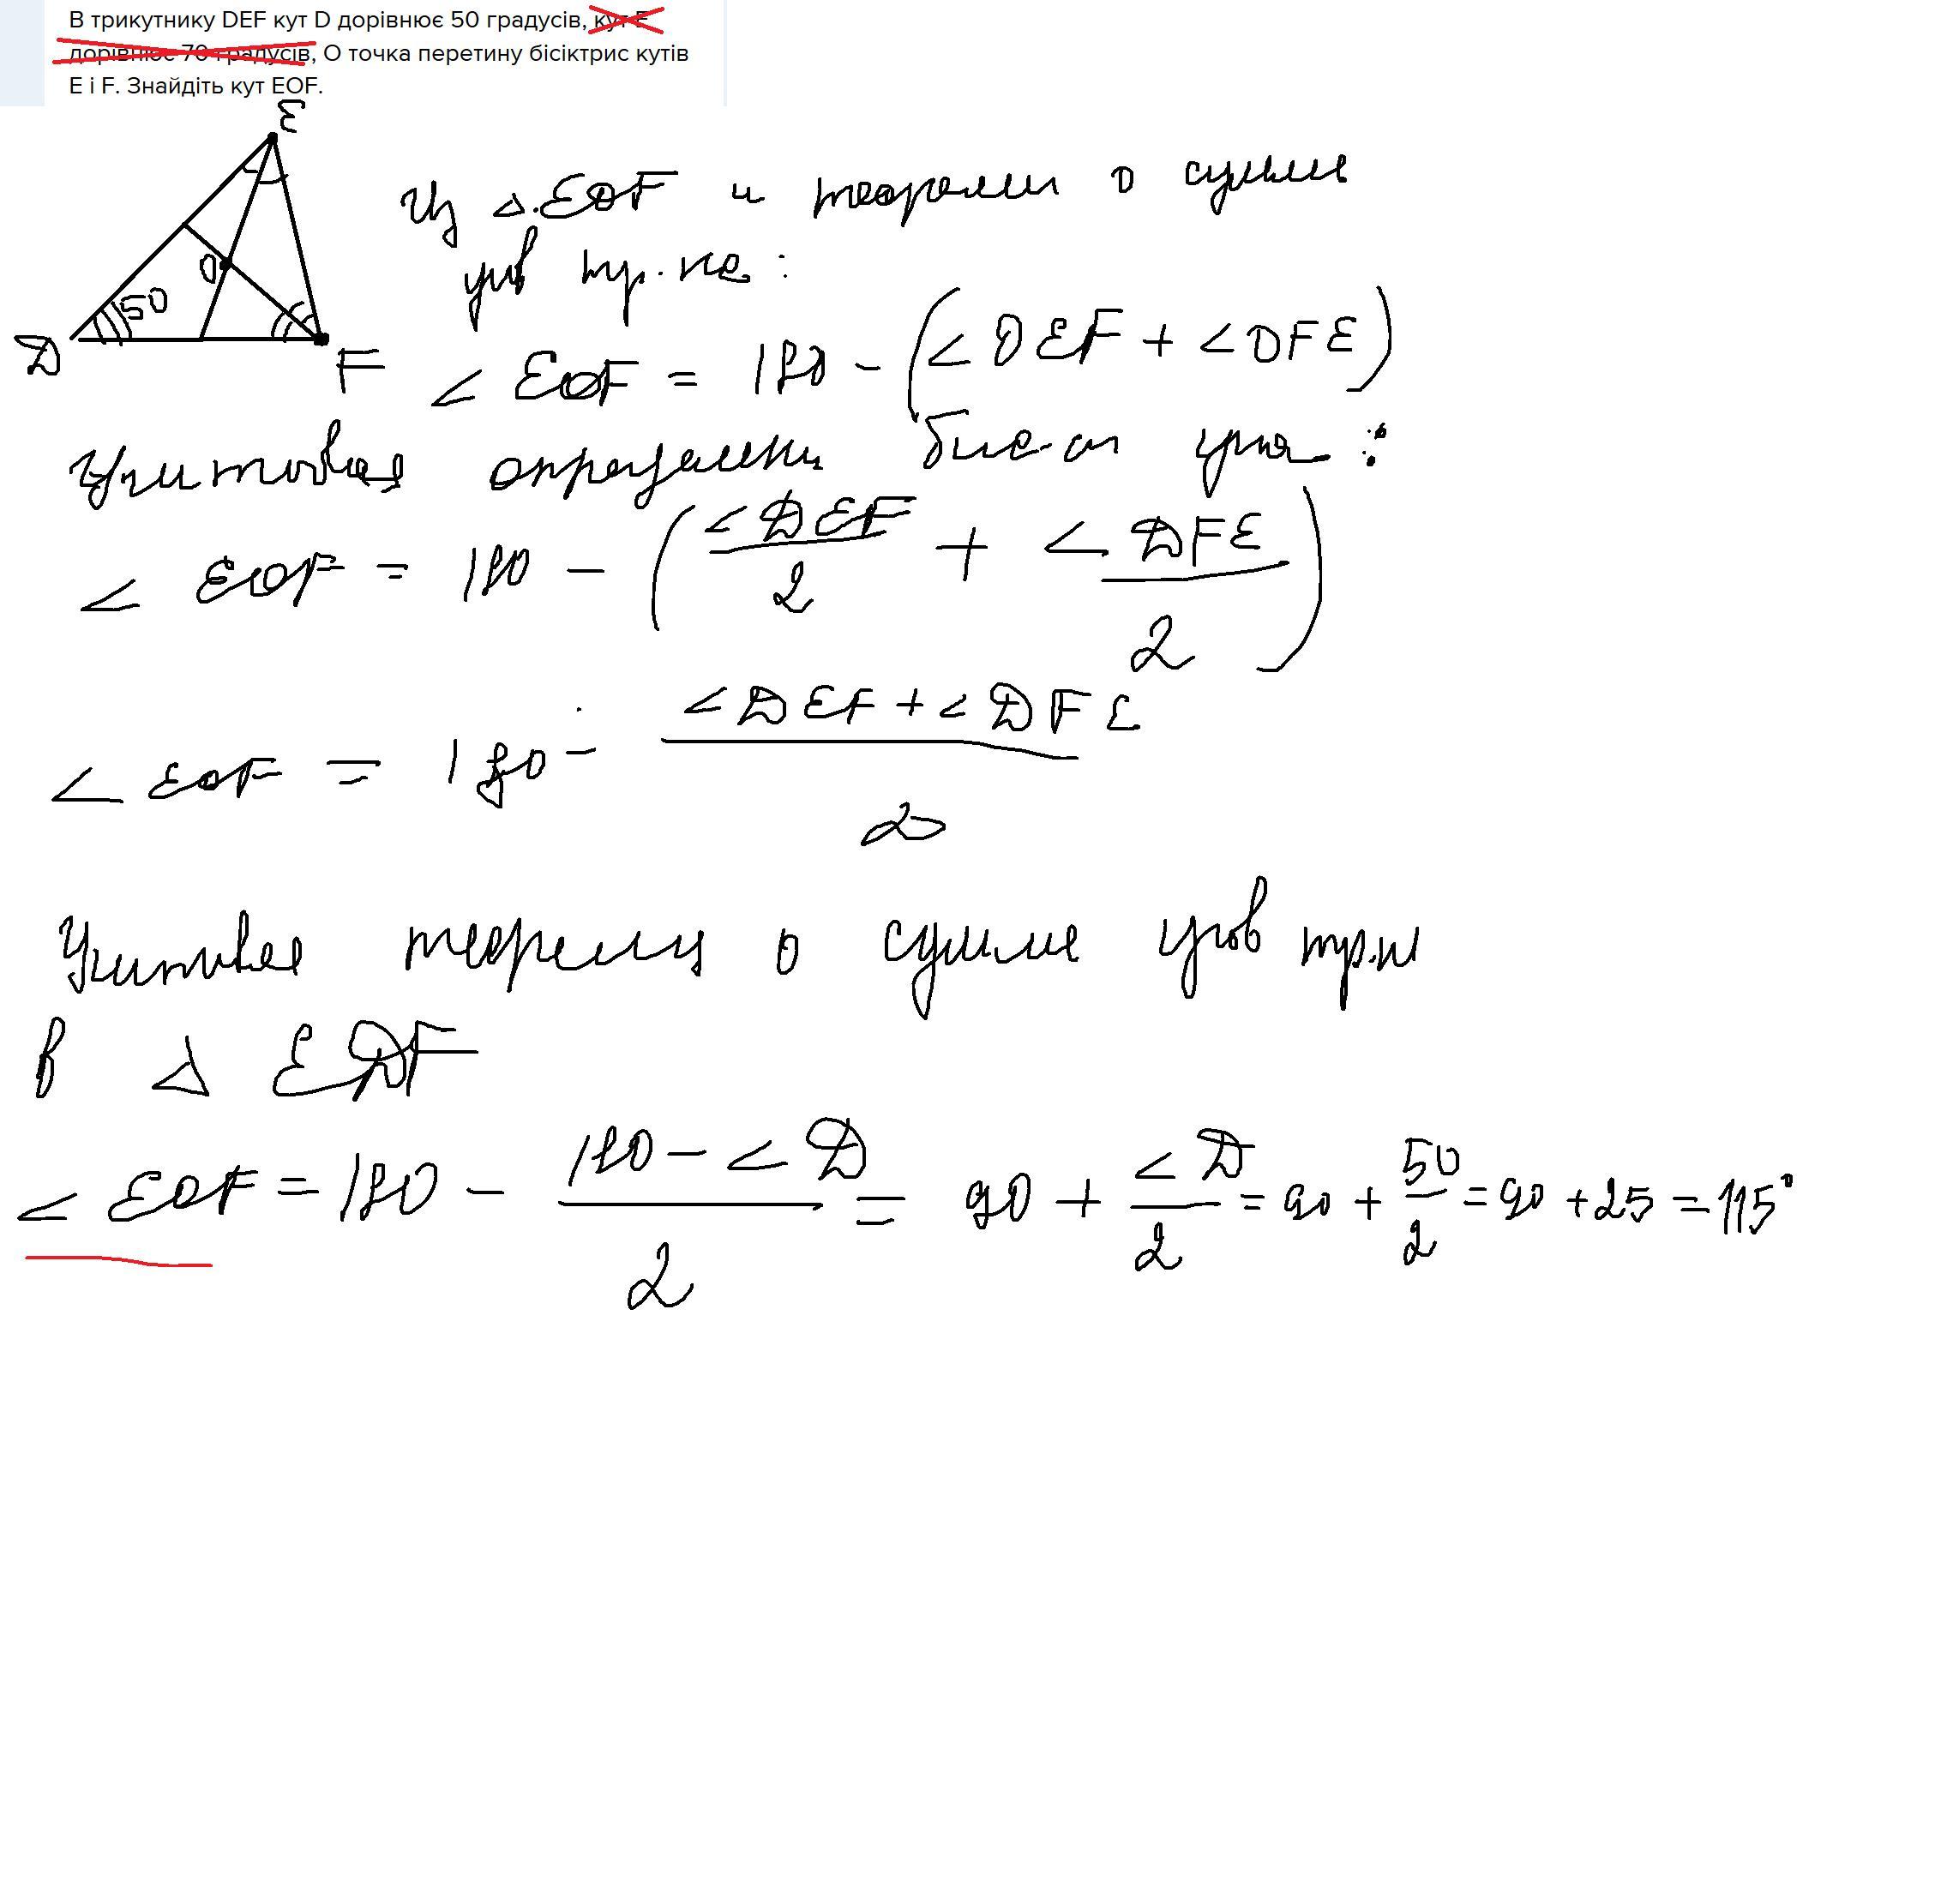 В трикутнику DEF кут D дорівнює 50 градусів, кут E
дорівнює 70 градусів, О точка перетину бісіктрис кутів
E і F. Знайдіть кут EOF.
E
O
50
D
F
Из △ EOF и теореми о сумме
угов тр-ка:
∠ EOF = 180 - (∠DEF + ∠DFE)
Учитовая определени бис-сы угла :
∠ EOF = 180 - (∠DEF/2 + ∠DFE/2)
∠ EOF = 180 - (∠DEF + ∠DFE)/2
теорему о сумме угов
в △ EDF
∠ EOF = 180 - (180 - ∠D)/2 = 90 + ∠D/2 = 90 + 50/2 = 90 + 25 = 115°